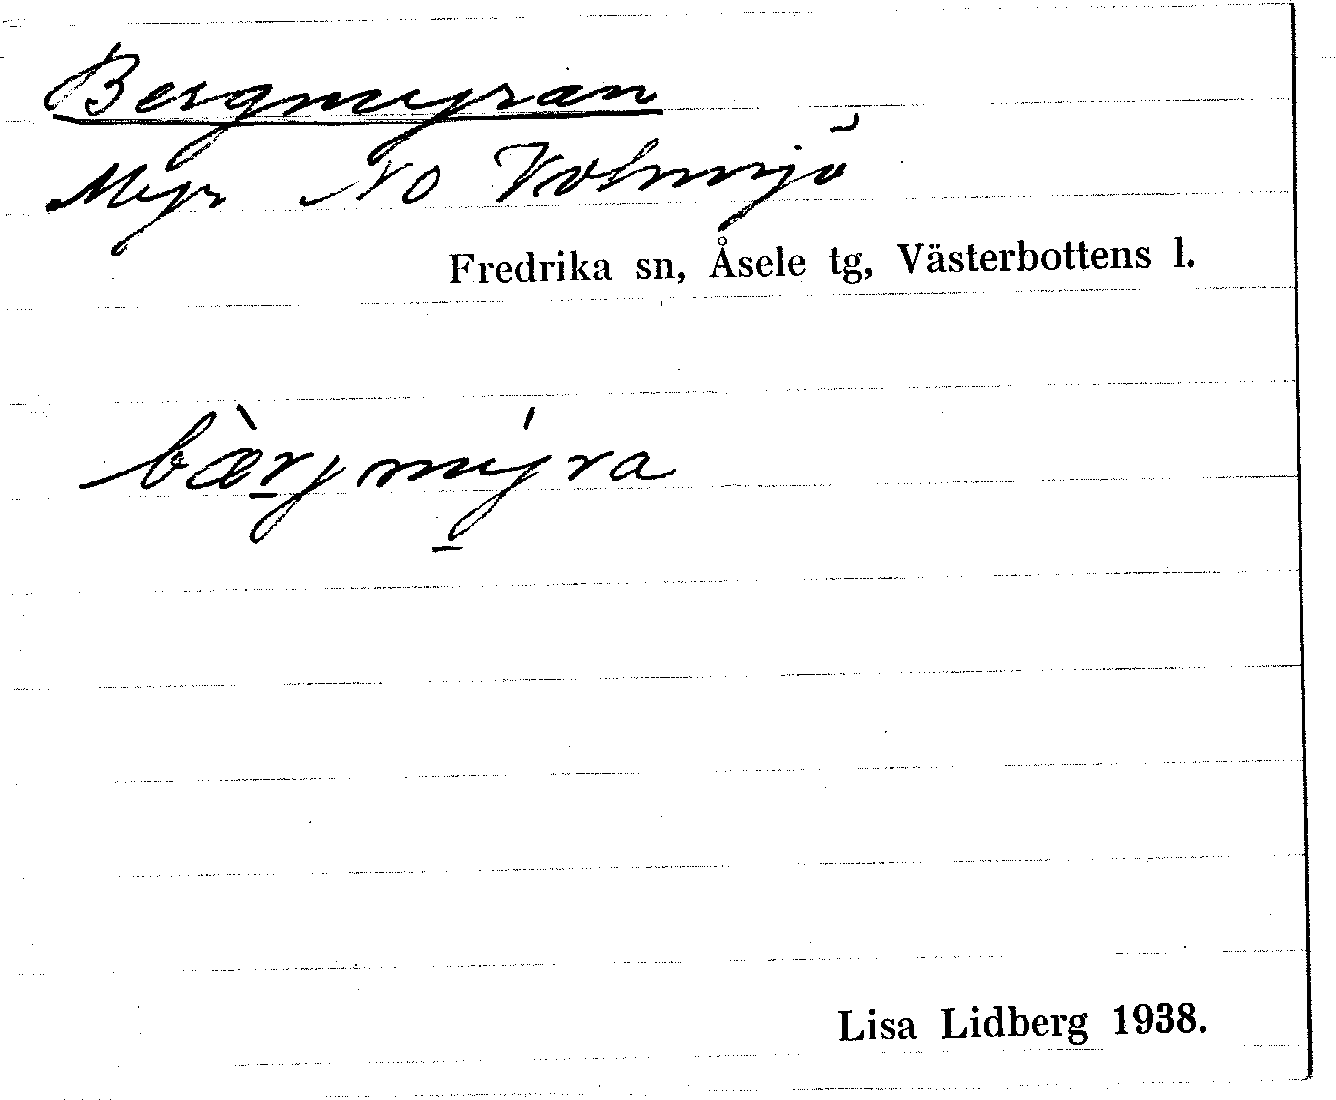 Bergmyran
Myr NO Volmsjö
Fredrika sn, Åsele tg, Västerbottens l.
bær̲jmy̲ra
Lisa Lidberg 1938.